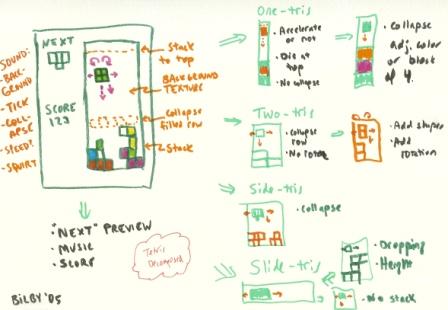 NEXT
SCORE
123
SOUND:
-BACK-
GROUND
-TICK
-COLL-
APSE
-STEED?
-SQUIRT
Stack
to top
BACKGROUND
TEXTURE
Collapse
filled row
Stack
"NEXT" PREVIEW
• MUSIC
• SCORE
Tetris
Decomposed
BILBY '05
One-tris
• Accelerate
or not
• Die at
top
• No collapse
• Collapse
adj. color
or block
of 4.
Two-tris
• Collapse
row
• No rotate
• Add shapes
• Add
rotation
Side-tris
• collapse
Slide-tris
• Dropping
• Height
• No stack